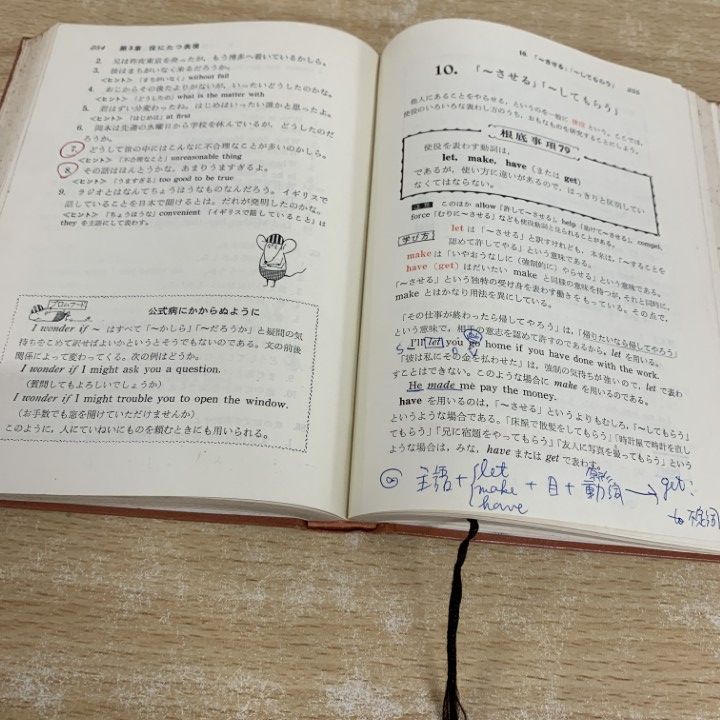 254 第3章 役にたつ表現
2. 兄は昨夜東京を発ったが，もう博多へ着いているかしら。
3. 彼はまちがいなく来るだろうか。
<ヒント> 「まちがいなく」without fail
4. おじからその後たよりがないが，いったいどうしたのかな。
<ヒント> 「どうしたの」what is the matter with
5. 君はずい分変わったね。はじめはいったい誰かと思ったよ。
<ヒント> 「はじめは」at first
6. 岡本は先週の水曜日から学校を休んでいるが，どうしたのだ
ろうか。
7. どうして世の中にはこんなに不合理なことが多いのかしら。
<ヒント> 「不合理なこと」unreasonable thing
8. その話はほんとうかな，あまりうますぎるよ。
<ヒント> 「うますぎる」too good to be true
9. ラジオとはなんてちょうほうなものなんだろう。イギリスで
話していることを日本で聞けるとは。だれが発明したのかな。
<ヒント> 「ちょうほうな」convenient 「イギリスで話していること」は
they を主語にして表わす。
公式病にかからぬように
I wonder if ～ はすべて「～かしら」「～だろうか」と疑問の気
持ちをこめて訳せばよいかというとそうでもないのである。文の前後
関係によって変わってくる。次の例はどうか。
I wonder if I might ask you a question.
(質問してもよろしいでしょうか)
I wonder if I might trouble you to open the window.
(お手数でも窓を開けていただけませんか)
このように，人にていねいにものを頼むときにも用いられる。
10. 「～させる」「～してもらう」 255
10. 「～させる」「～してもらう」
他人にあることをやらせる，というのを一般に 使役 という。ここでは，
使役のいろいろな表わし方のうち，おもなものを研究することにしよう。
根底事項 79
使役を表わす動詞は，
let, make, have (または get)
であるが，使い方に違いがあるので，はっきりと区別してい
なくてはならない。
注意 このほか allow「許して～させる」, help「助けて～させる」, compel,
force「むりに～させる」なども使役動詞と見られることがある。
学び方 let は「～させる」と訳すけれども，本来は，「～することを
認めて許してやる」という意味である。
make は「いやおうなしに (強制的に) やらせる」という意味である。
have (get) はだいたい make と同様の意味を持つが，それと同時に，
「～させる」という独特の受け身を表わす働きをもっている。その点で，
make とはかなり用法を異にしている。
「その仕事が終わったら帰してやろう」は，「帰りたいなら帰してやろう」
という意味で，相手の意志を認めて許すのであるから，let を用いる。
I'll let you go home if you have done with the work.
S V O V
「彼は私にその金を払わせた」は，強制の気持ちが強いので，let で表わ
すことはできない。このような場合に make を用いるのである。
He made me pay the money.
have を用いるのは，「～させる」というよりもむしろ，「～してもらう」
というような場合である。「床屋で散髪をしてもらう」「時計屋で時計を直し
てもらう」「兄に宿題をやってもらう」「友人に写真を撮ってもらう」という
ような場合は，みな，have または get で表わす。
主語 + { let make have + 目 + 動詞 → get:
to 不定詞